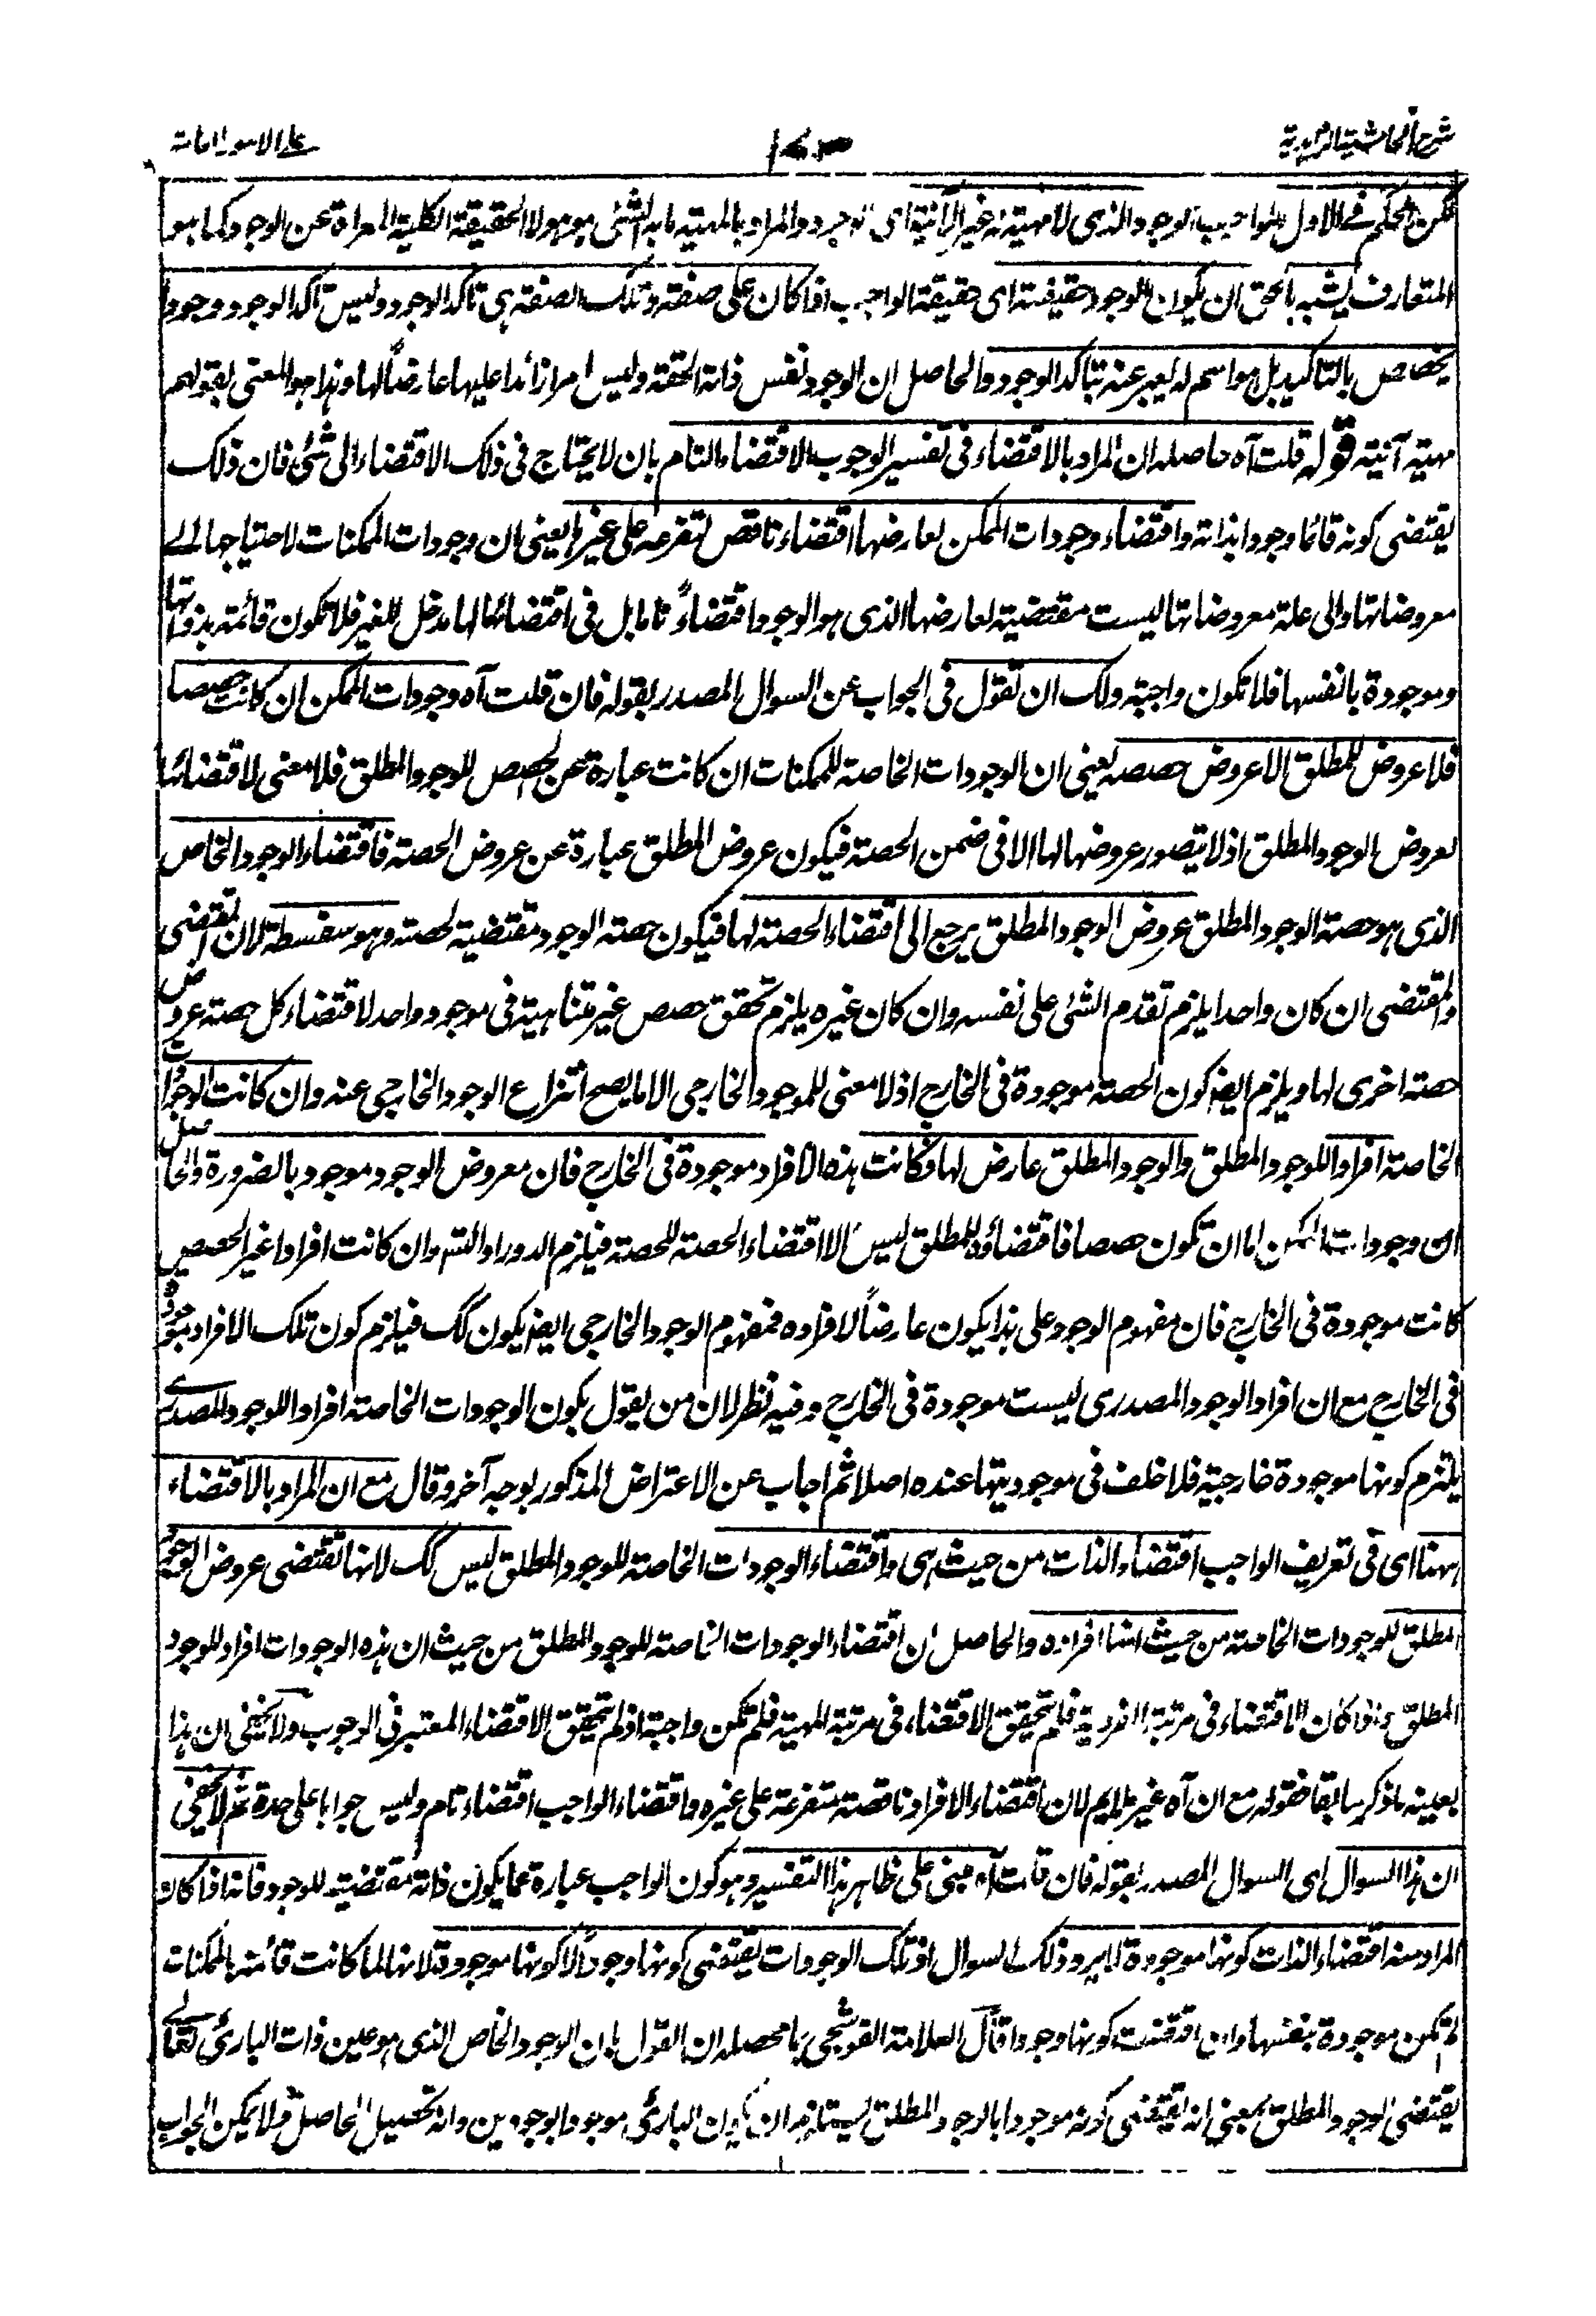 شرح الحاشية الزاهدية
١٧٣
على الامور العامة
لكن الحكم في الاول الواجب الوجود الذي لا مهية له غير الآنية اى الوجود والمراد بالمهية ما به الشئ هو هو لا الحقيقة الكلية المعراة عن الوجود كما هو
المتعارف يشبه بالحق ان يكون الوجود حقيقته اى حقيقة الواجب اذا كان على صفة وتلك الصفة هى تاكد الوجود وليس تاكد الوجود وجودا
يخصص بالتاكيد بل هو اسم له يعبر عنه بتاكد الوجود والحاصل ان الوجود نفس ذاته الحقة وليس امرا زائدا عليها عارضاً لها وهذا هو المعنى بقولهم
مهية آنيته قوله قلت آه حاصله ان المراد بالاقتضاء فى تفسير الوجوب الاقتضاء التام بان لا يحتاج فى ذلك الاقتضاء الى شئ فان ذلك
يقتضى كونه قائما وجودا بذاته واقتضاء وجودات الممكن لعارضها اقتضاء ناقص لتفرعه على غيرها يعنى ان وجودات الممكنات لاحتياجها الى
معروضاتها والى علة معروضاتها ليست مقتضية لعارضها الذى هو الوجود اقتضاءً تاما بل فى اقتضائها لها مدخل للغير فلا تكون قائمة بذواتها
وموجودة بانفسها فلا تكون واجبة ولك ان تقول فى الجواب عن السوال المصدر بقوله فان قلت آه وجودات الممكن ان كانت حصصا
فلا عروض للمطلق الا عروض حصصه يعنى ان الوجودات الخاصة للممكنات ان كانت عبارة عن الحصص للوجود المطلق فلا معنى لاقتضائها
لعروض الوجود المطلق اذ لا يتصور عروضها لها الا فى ضمن الحصة فيكون عروض المطلق عبارة عن عروض الحصة فاقتضاء الوجود الخاص
الذى هو حصة الوجود المطلق عروض الوجود المطلق يرجع الى اقتضاء الحصة لها فيكون حصة الوجود مقتضية لحصته وهو سفسطة لان المقتضى
والمقتضى ان كان واحدا يلزم تقدم الشئ على نفسه وان كان غيره يلزم تحقق حصص غير متناهية فى موجود واحد لاقتضاء كل حصة عروض
حصة اخرى لها ويلزم ايضا كون الحصة موجودة فى الخارج اذ لا معنى للموجود الخارجى الا ما يصح انتزاع الوجود الخارجى عنه وان كانت الوجودات
الخاصة افراد اللوجود المطلق والوجود المطلق عارض لها فكانت هذه الافراد موجودة فى الخارج فان معروض الوجود موجود بالضرورة والحاصل
ان وجودات الممكن اما ان تكون حصصا فاقتضاؤه للمطلق ليس الا اقتضاء الحصة للحصة فيلزم الدور او التسه وان كانت افرادا غير الحصص
كانت موجودة فى الخارج فان مفهوم الوجود على هذا يكون عارضاً لافراده فمفهوم الوجود الخارجى ايضا يكون كك فيلزم كون تلك الافراد موجودة
فى الخارج مع ان افراد الوجود المصدرى ليست موجودة فى الخارج وفيه نظر لان من يقول بكون الوجودات الخاصة افراد اللوجود المصدرى
يلتزم كونها موجودة خارجية فلا خلف فى موجوديتها عنده اصلا ثم اجاب عن الاعتراض المذكور بوجه آخر وقال مع ان المراد بالاقتضاء
ههنا اى فى تعريف الواجب اقتضاء الذات من حيث هى واقتضاء الوجودات الخاصة للوجود المطلق ليس كك لانها تقتضى عروض الوجود
المطلق للوجودات الخاصة من حيث انها افراده والحاصل ان اقتضاء الوجودات الخاصة للوجود المطلق من حيث ان هذه الوجودات افراد للوجود
المطلق واذا كان الاقتضاء فى مرتبة الفردية فلم يتحقق الاقتضاء فى مرتبة المهية فلم تكن واجبة اذ لم يتحقق الاقتضاء المعتبر فى الوجوب ولا يخفى ان هذا
بعينه ما ذكر سابقا فقوله مع ان آه غير ملايم لان اقتضاء الافراد ناقصة متفرعة على غيره واقتضاء الواجب اقتضاء تام وليس جوابا على حدة ثم لا يخفى
ان هذا السوال اى السوال المصدر بقوله فان قلت آه مبنى على ظاهر هذا التفسير وهو كون الواجب عبارة عما يكون ذاته مقتضية للوجود فانه اذا كان
المراد منه اقتضاء الذات كونها موجودة لا يرد ذلك السوال اذ تلك الوجودات يقتضى كونها وجوداً لا كونها موجودة لانها لما كانت قائمة بالممكنات
لم تكن موجودة بنفسها وان اقتضت كونها وجودا قال العلامة القوشجى ما محصله ان القول بان الوجود الخاص الذى هو عين ذات البارئ تعالى
يقتضى الوجود المطلق بمعنى انه يقتضى كونه موجودا بالوجود المطلق يستلزم ان يكون البارئ موجودا بوجودين وانه تحصيل الحاصل ولا يمكن الجواب